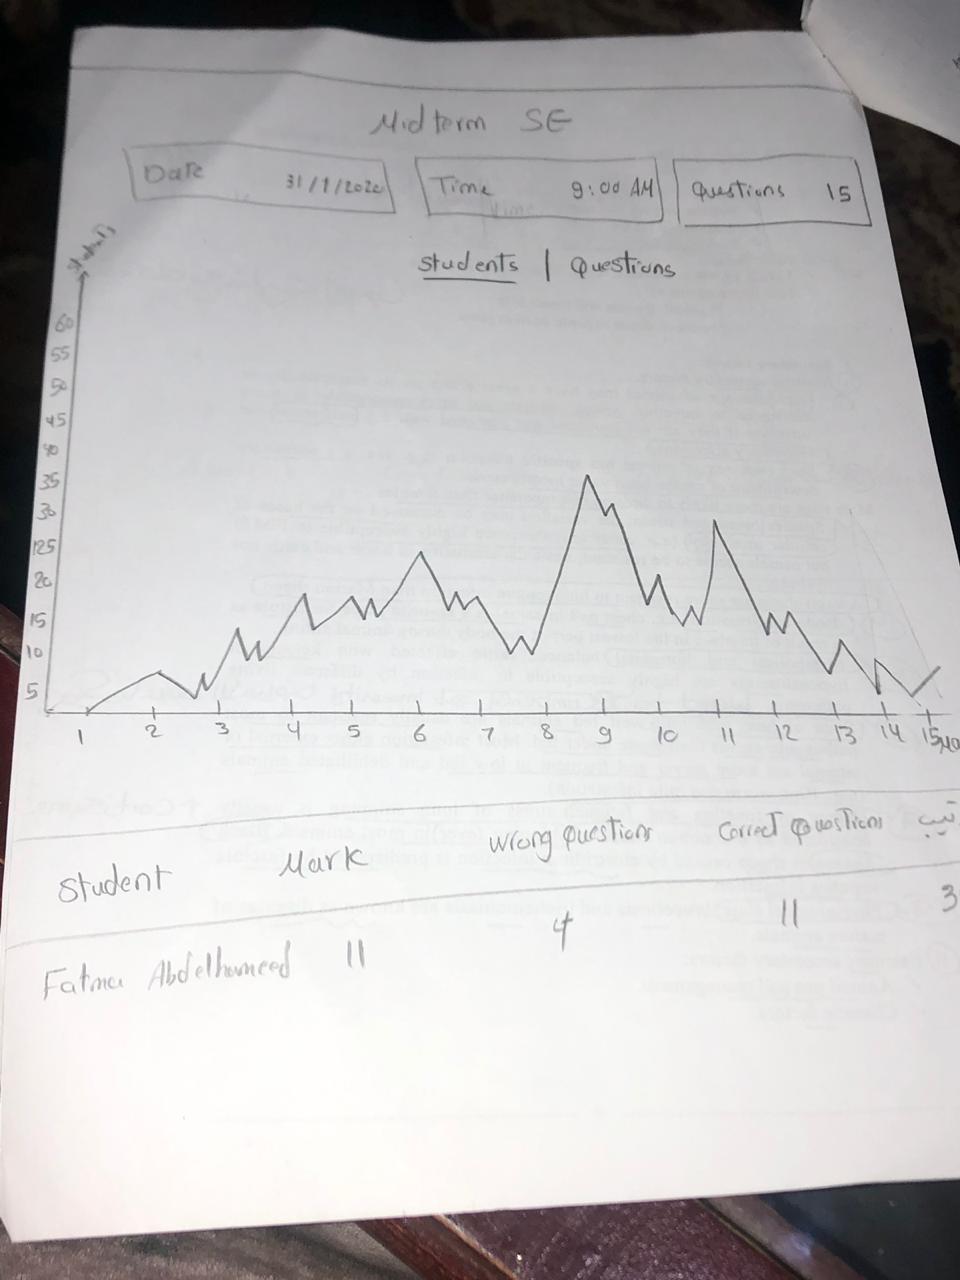 Midterm SE
Date 31/1/2020
Time 9:00 AM
Questions 15
Students | Questions
Students
60
55
50
45
40
35
30
125
20
15
10
5
1 2 3 4 5 6 7 8 9 10 11 12 13 14 15
Student Mark Wrong Question Correct Question
Fatma Abdelhameed 11 4 11 3